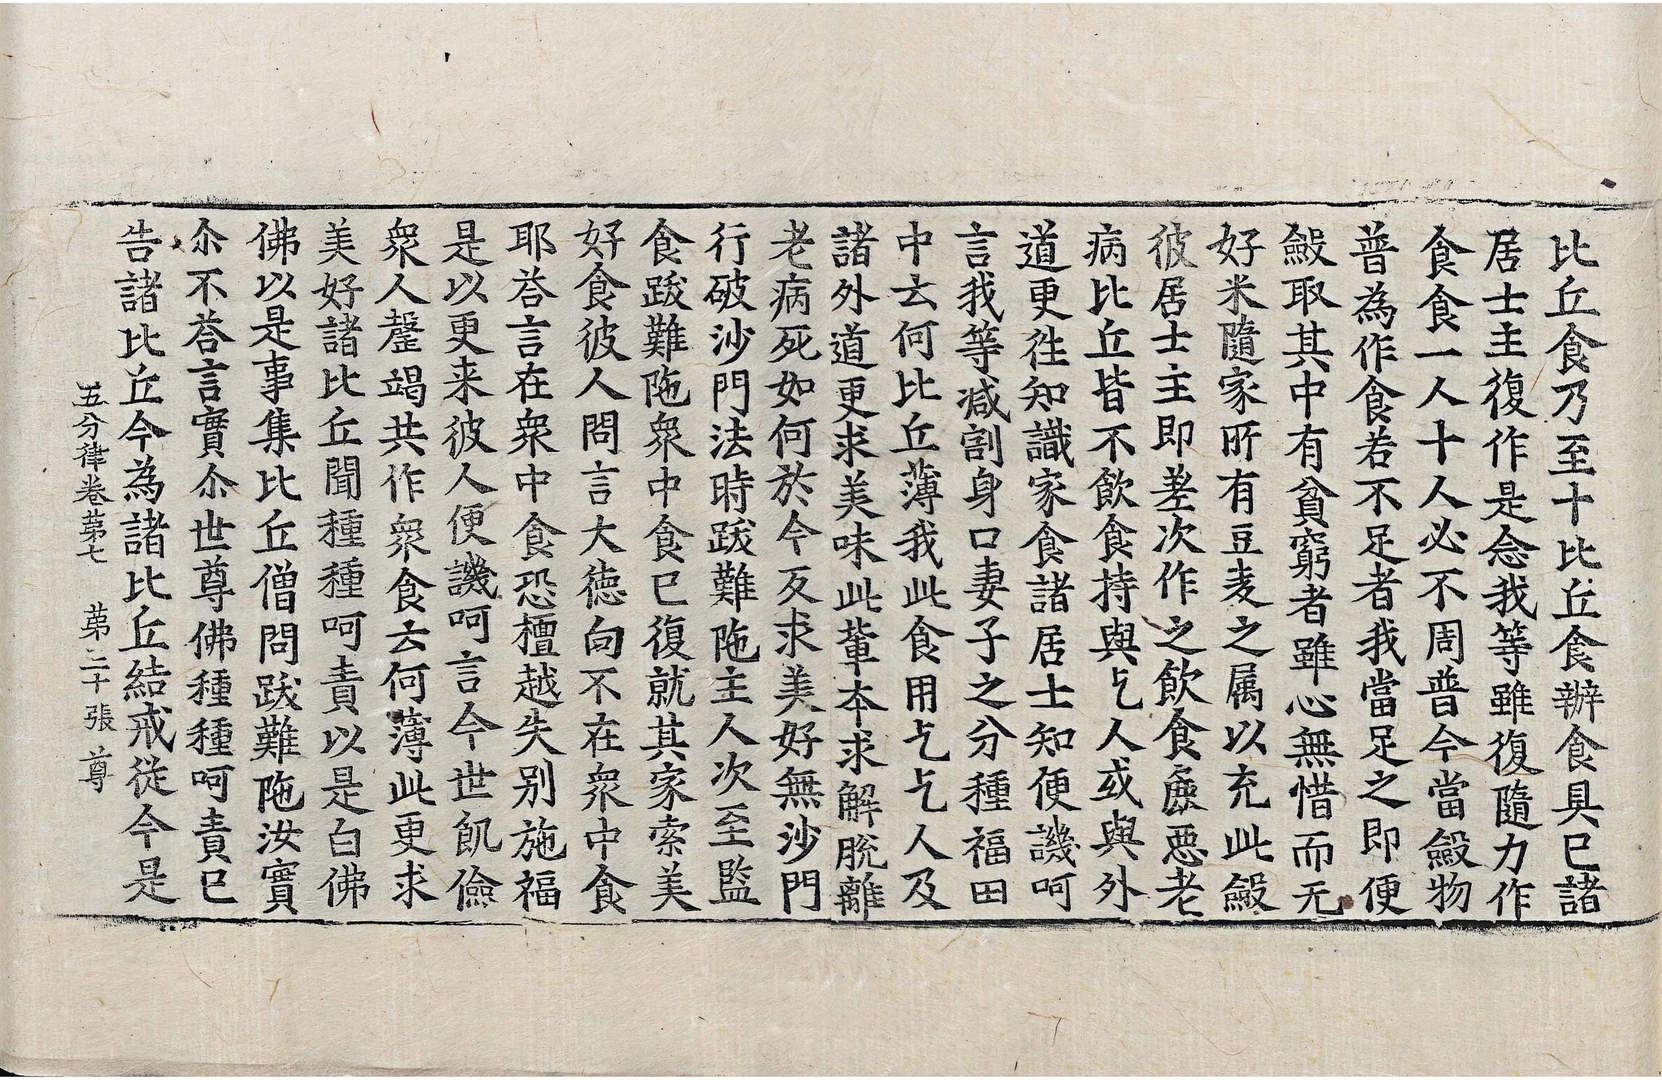 比丘食乃至十比丘食辦食具已諸
居士主復作是念我等雖復隨力作
食食一人十人必不周普今當斂物
普為作食若不足者我當足之即便
斂取其中有貧窮者雖心無惜而无
好米隨家所有豆麦之属以充此斂
彼居士主即差次作之飲食麁惡老
病比丘皆不飲食持與乞人或與外
道更往知識家食諸居士知便譏呵
言我等减割身口妻子之分種福田
中云何比丘薄我此食用乞乞人及
諸外道更求美味此軰本求解脫離
老病死如何於今反求美好無沙門
行破沙門法時跋難陁主人次至監
食跋難陁衆中食已復就其家索美
好食彼人問言大德向不在衆中食
耶荅言在衆中食恐檀越失别施福
是以更来彼人便譏呵言今世飢儉
衆人罄竭共作衆食云何薄此更求
美好諸比丘聞種種呵責以是白佛
佛以是事集比丘僧問跋難陁汝實
尒不荅言實尒世尊佛種種呵責已
告諸比丘今為諸比丘結戒從今是
五分律卷苐七　苐二十張　尊